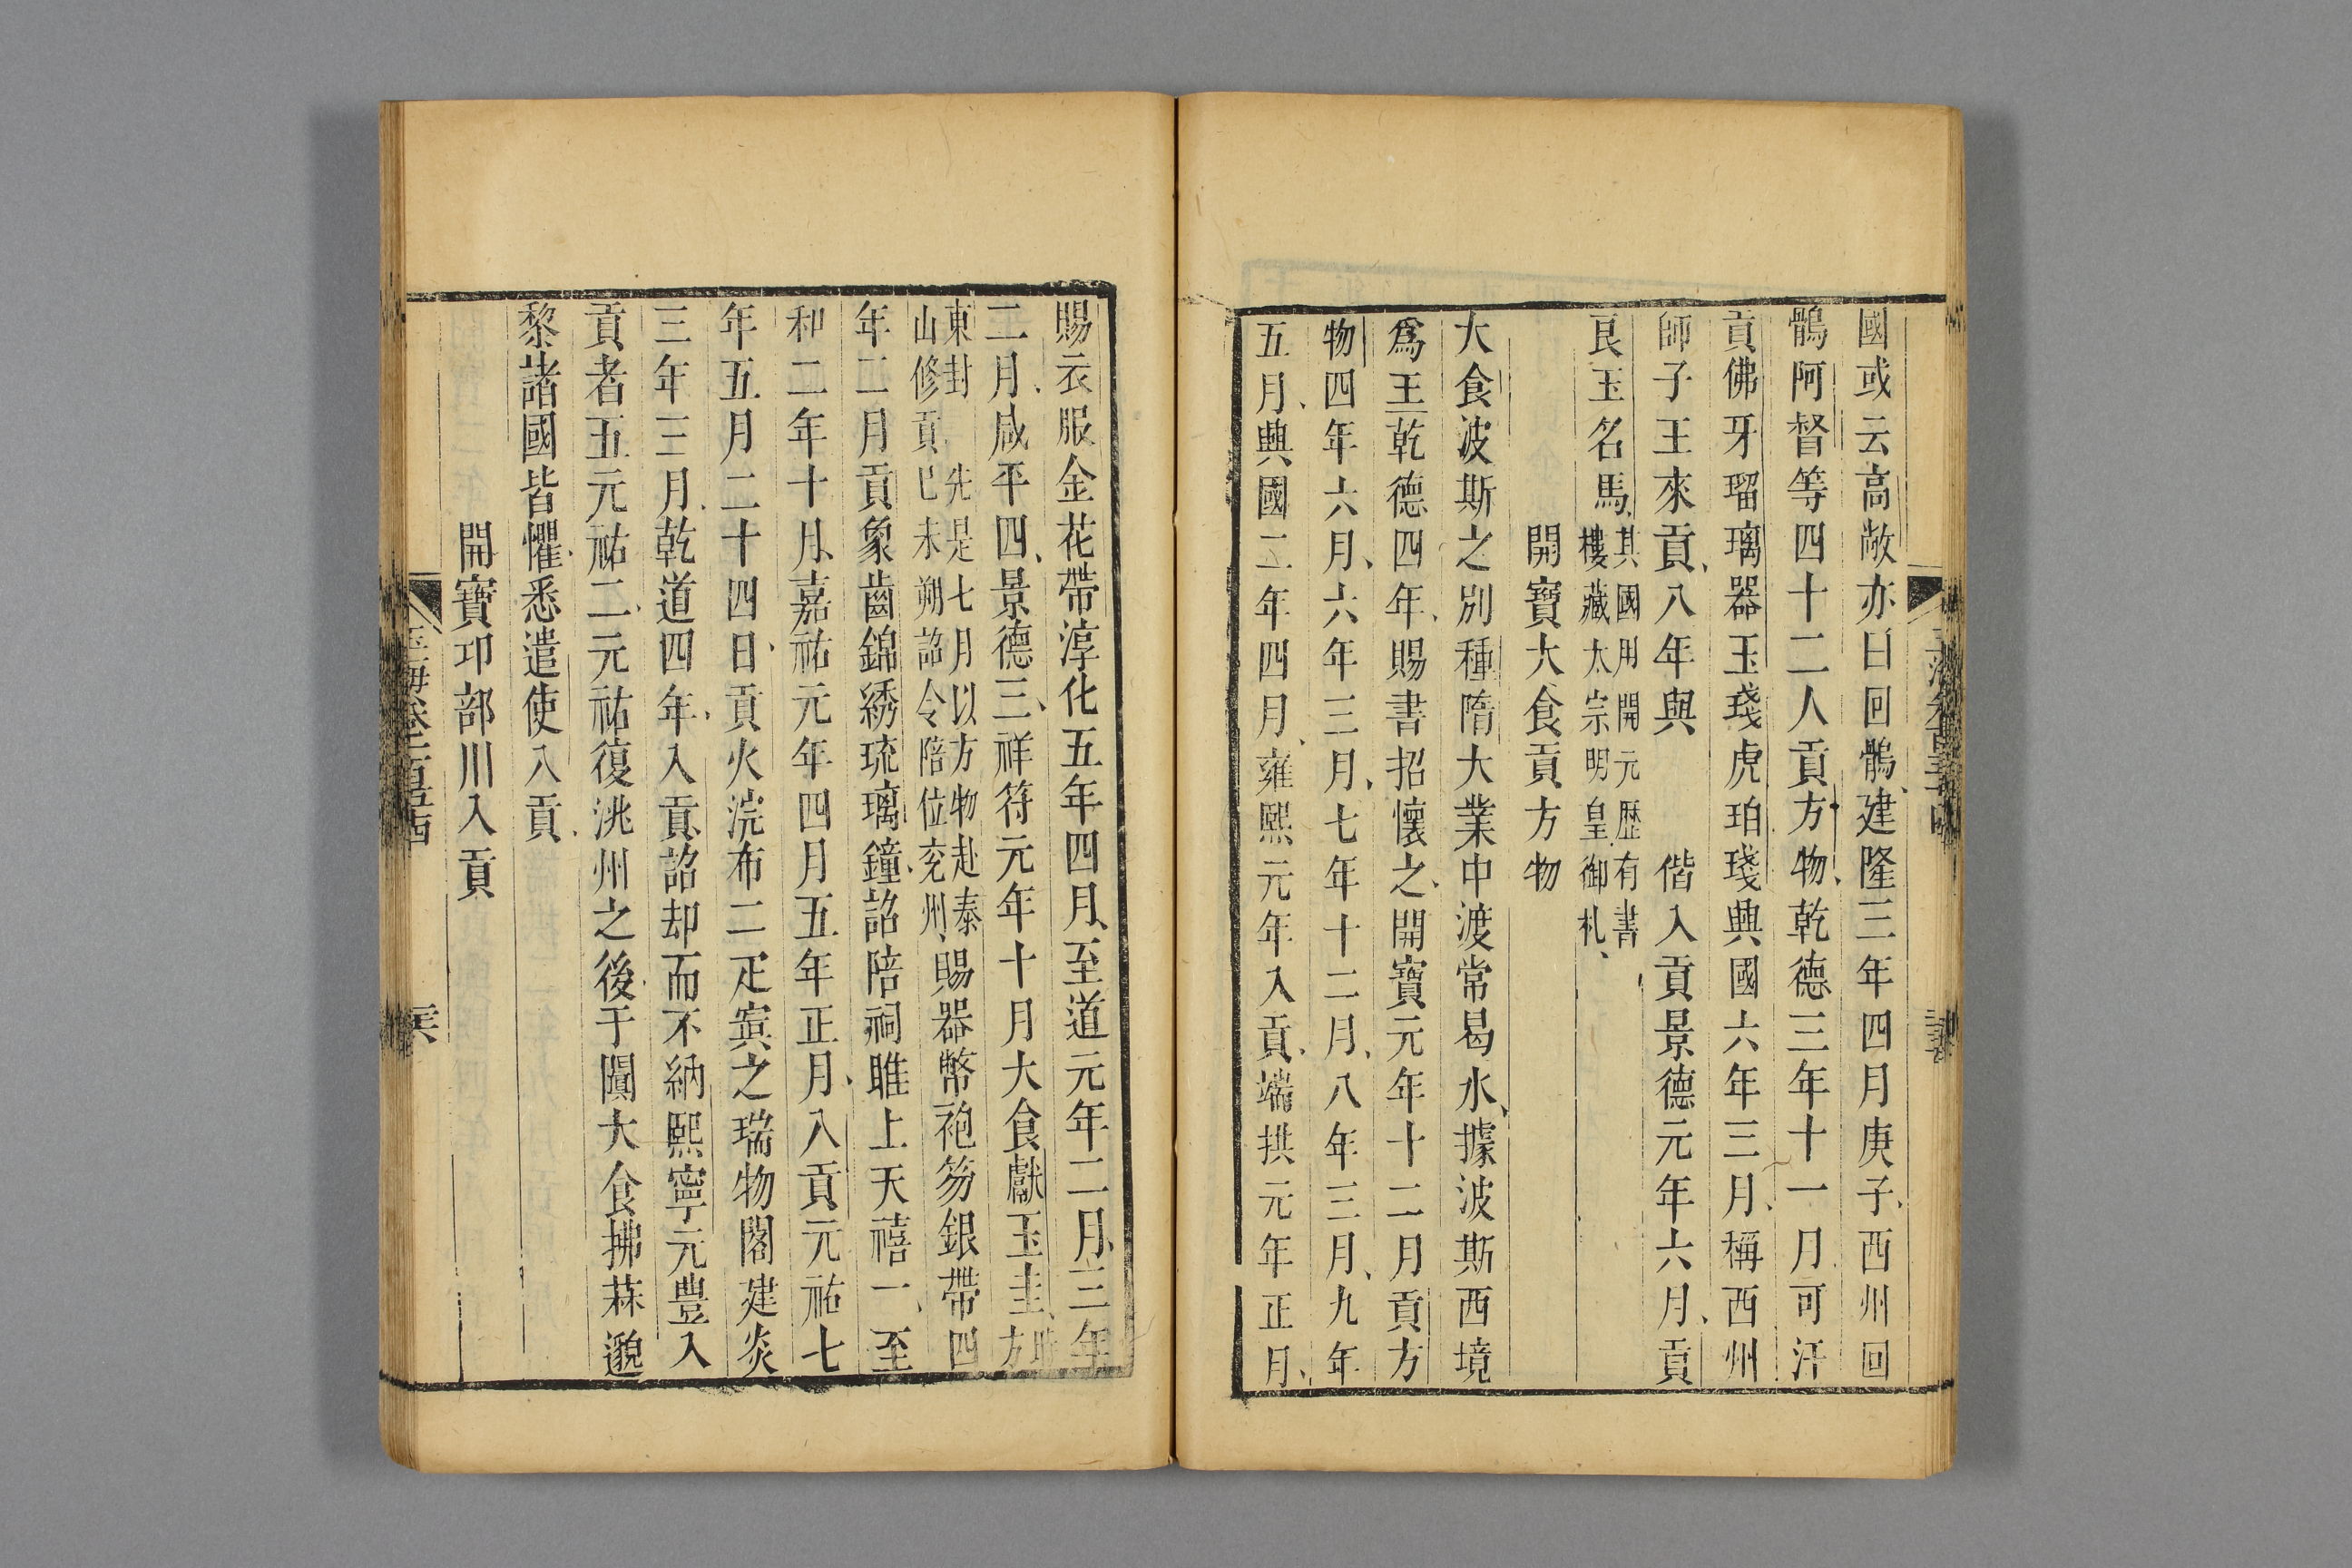 國或云高敞亦曰回鶻建隆三年四月庚子西州回
鶻阿督等四十二人貢方物乾德三年十一月可汗
貢佛牙瑠璃器玉琖虎珀琖興國六年三月稱西州
師子王來貢八年與 偕入貢景德元年六月貢
良玉名馬其國用開元歷有書
樓藏太宗明皇御札
開寶大食貢方物
大食波斯之別種隋大業中渡常曷水據波斯西境
爲王乾德四年賜書招懷之開寶元年十二月貢方
物四年六月六年三月七年十二月八年三月九年
五月興國二年四月雍熙元年入貢端拱元年正月
賜衣服金花帶淳化五年四月至道元年二月三年
二月咸平四景德三祥符元年十月大食獻玉圭時
方
東封 先是七月以方物赴泰
山修貢已未朔詔令陪位兖州賜器幣袍笏銀帶四
年二月貢象齒錦綉琉璃鐘詔陪祠睢上天禧一至
和二年十月嘉祐元年四月五年正月入貢元祐七
年五月二十四日貢火浣布二疋寘之瑞物閣建炎
三年三月乾道四年入貢詔却而不納熙寧元豐入
貢者五元祐二元祐復洮州之後于闐大食拂菻邈
黎諸國皆懼悉遣使入貢
開寶邛部川入貢
玉海卷一百五十四